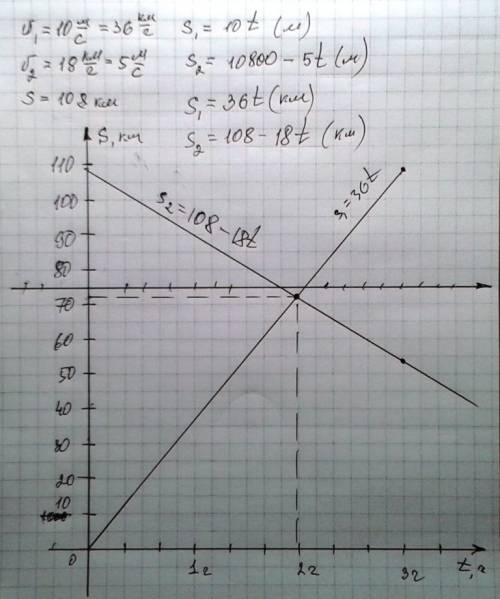 v₁ = 10 м/с = 36 км/г S₁ = 10t (м)
v₂ = 18 км/г = 5 м/с S₂ = 10800 – 5t (м)
S = 108 км S₁ = 36t (км)
S₂ = 108 – 18t (км)
S, км
110
100
90
80
70
60
50
40
30
20
10
0
S₂ = 108 – 18t
S₁ = 36t
1г
2г
3г
t, г